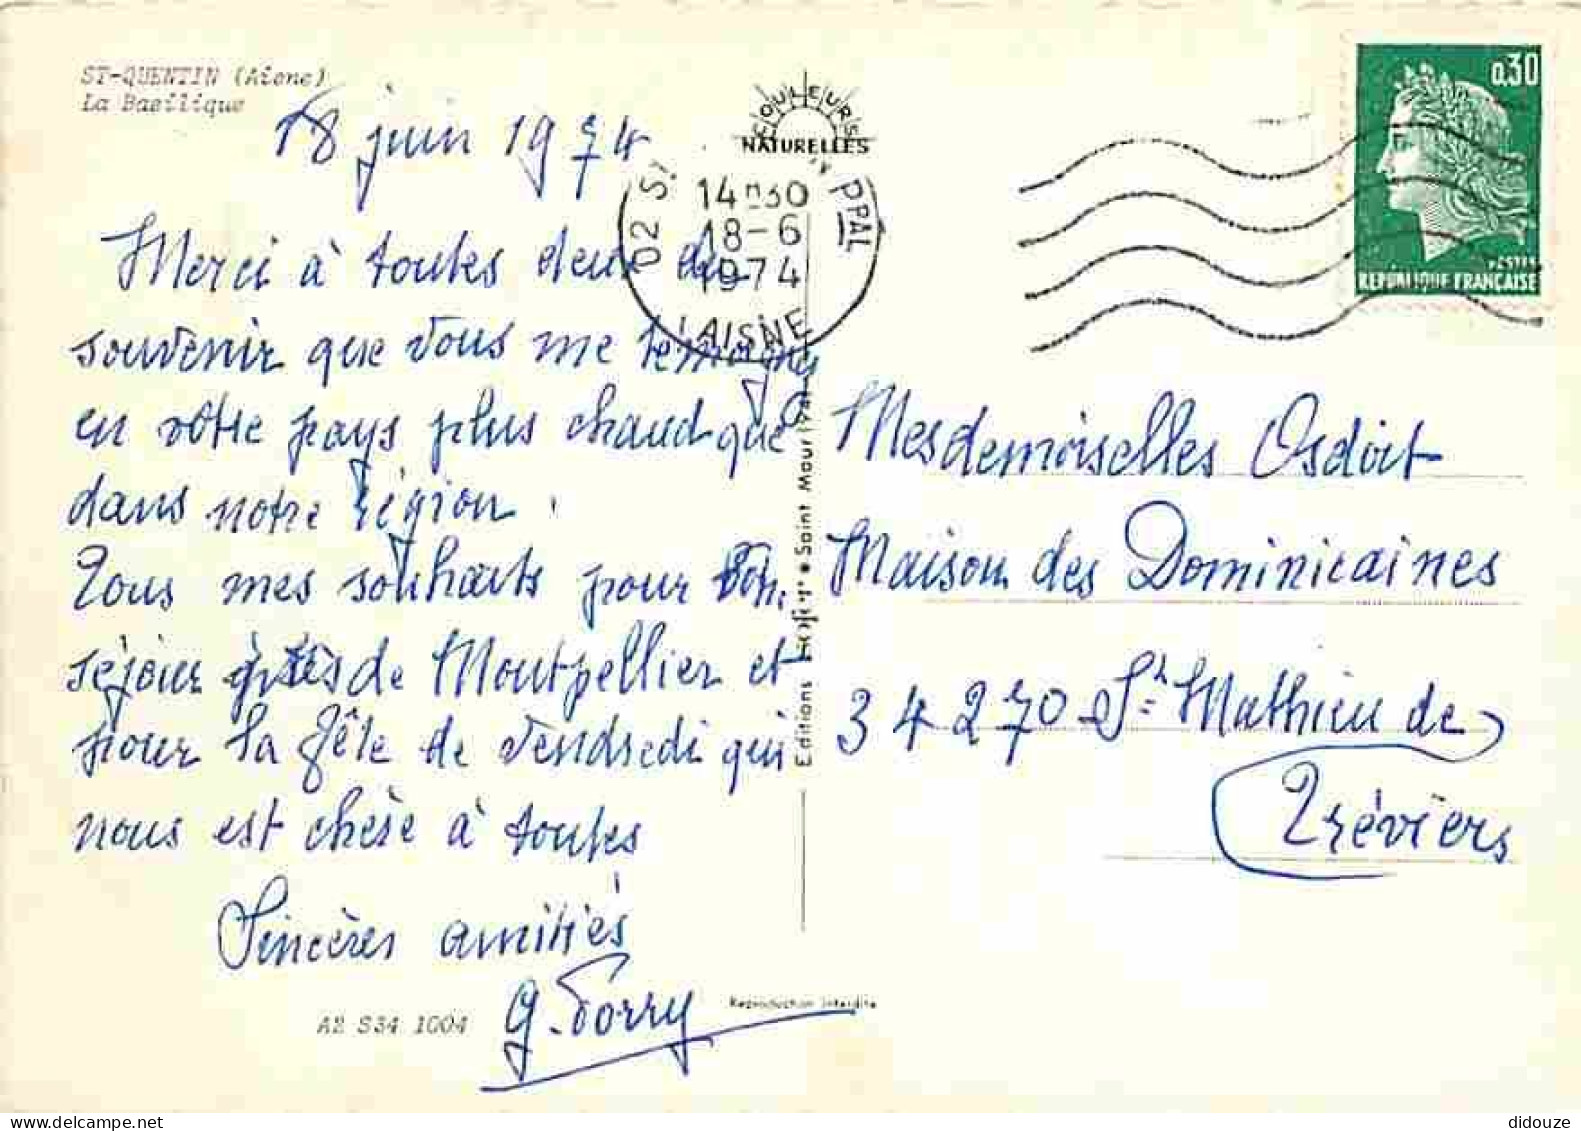 ST-QUENTIN (Aisne)
La Basilique
18 juin 1974
Merci à toutes deux du
souvenir que vous me témoignez
en vôtre pays plus chaud que
dans notre région.
Tous mes souhaits pour bon
séjour près de Montpellier et
pour la fête de Vendredi qui
nous est chère à toutes
Sincères amitiés
A2 S34 1004
COULEURS
NATURELLES
02 ST PPAL
14H30
18-6
1974
AISNE
Editions • Saint Maur (94)
Reproduction interdite
0,30
POSTES
REPUBLIQUE FRANÇAISE
Mesdemoiselles Osdoit
Maison des Dominicaines
34270 St Mathieu de
Tréviers
didouze